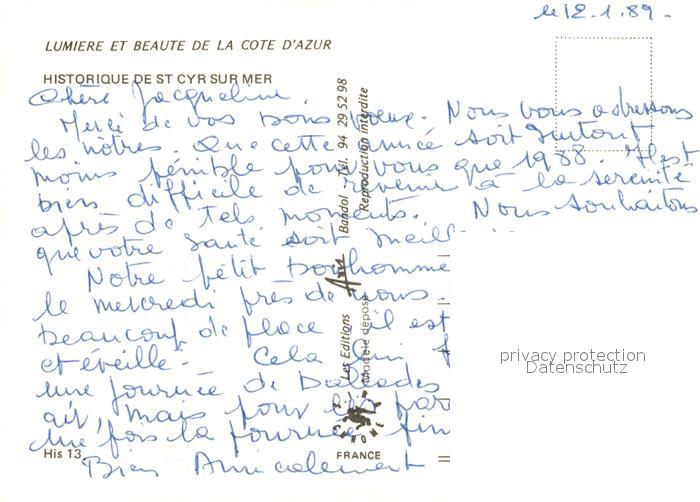 le 12.1.89.
LUMIERE ET BEAUTE DE LA COTE D'AZUR
HISTORIQUE DE ST CYR SUR MER
Chère Jacqueline,
Merci de vos bons voeux. Nous vous adressons
les nôtres. Que cette année soit surtout
moins pénible pour vous que 1988. Il est
bien difficile de revenir à la serénité
après de tels moments. Nous souhaitons
que votre santé soit meill
Notre petit bonhomme
le mercredi près de nous.
beaucoup de place il est
et éveillé. Cela lui f
une journée de balades
air, mais pour les par
une fois la journée fin
Bien Amicalement
Les Editions Bandol - Tél. 94 29 52 98
Modèle déposé Reproduction interdite
privacy protection
Datenschutz
His 13.
FRANCE